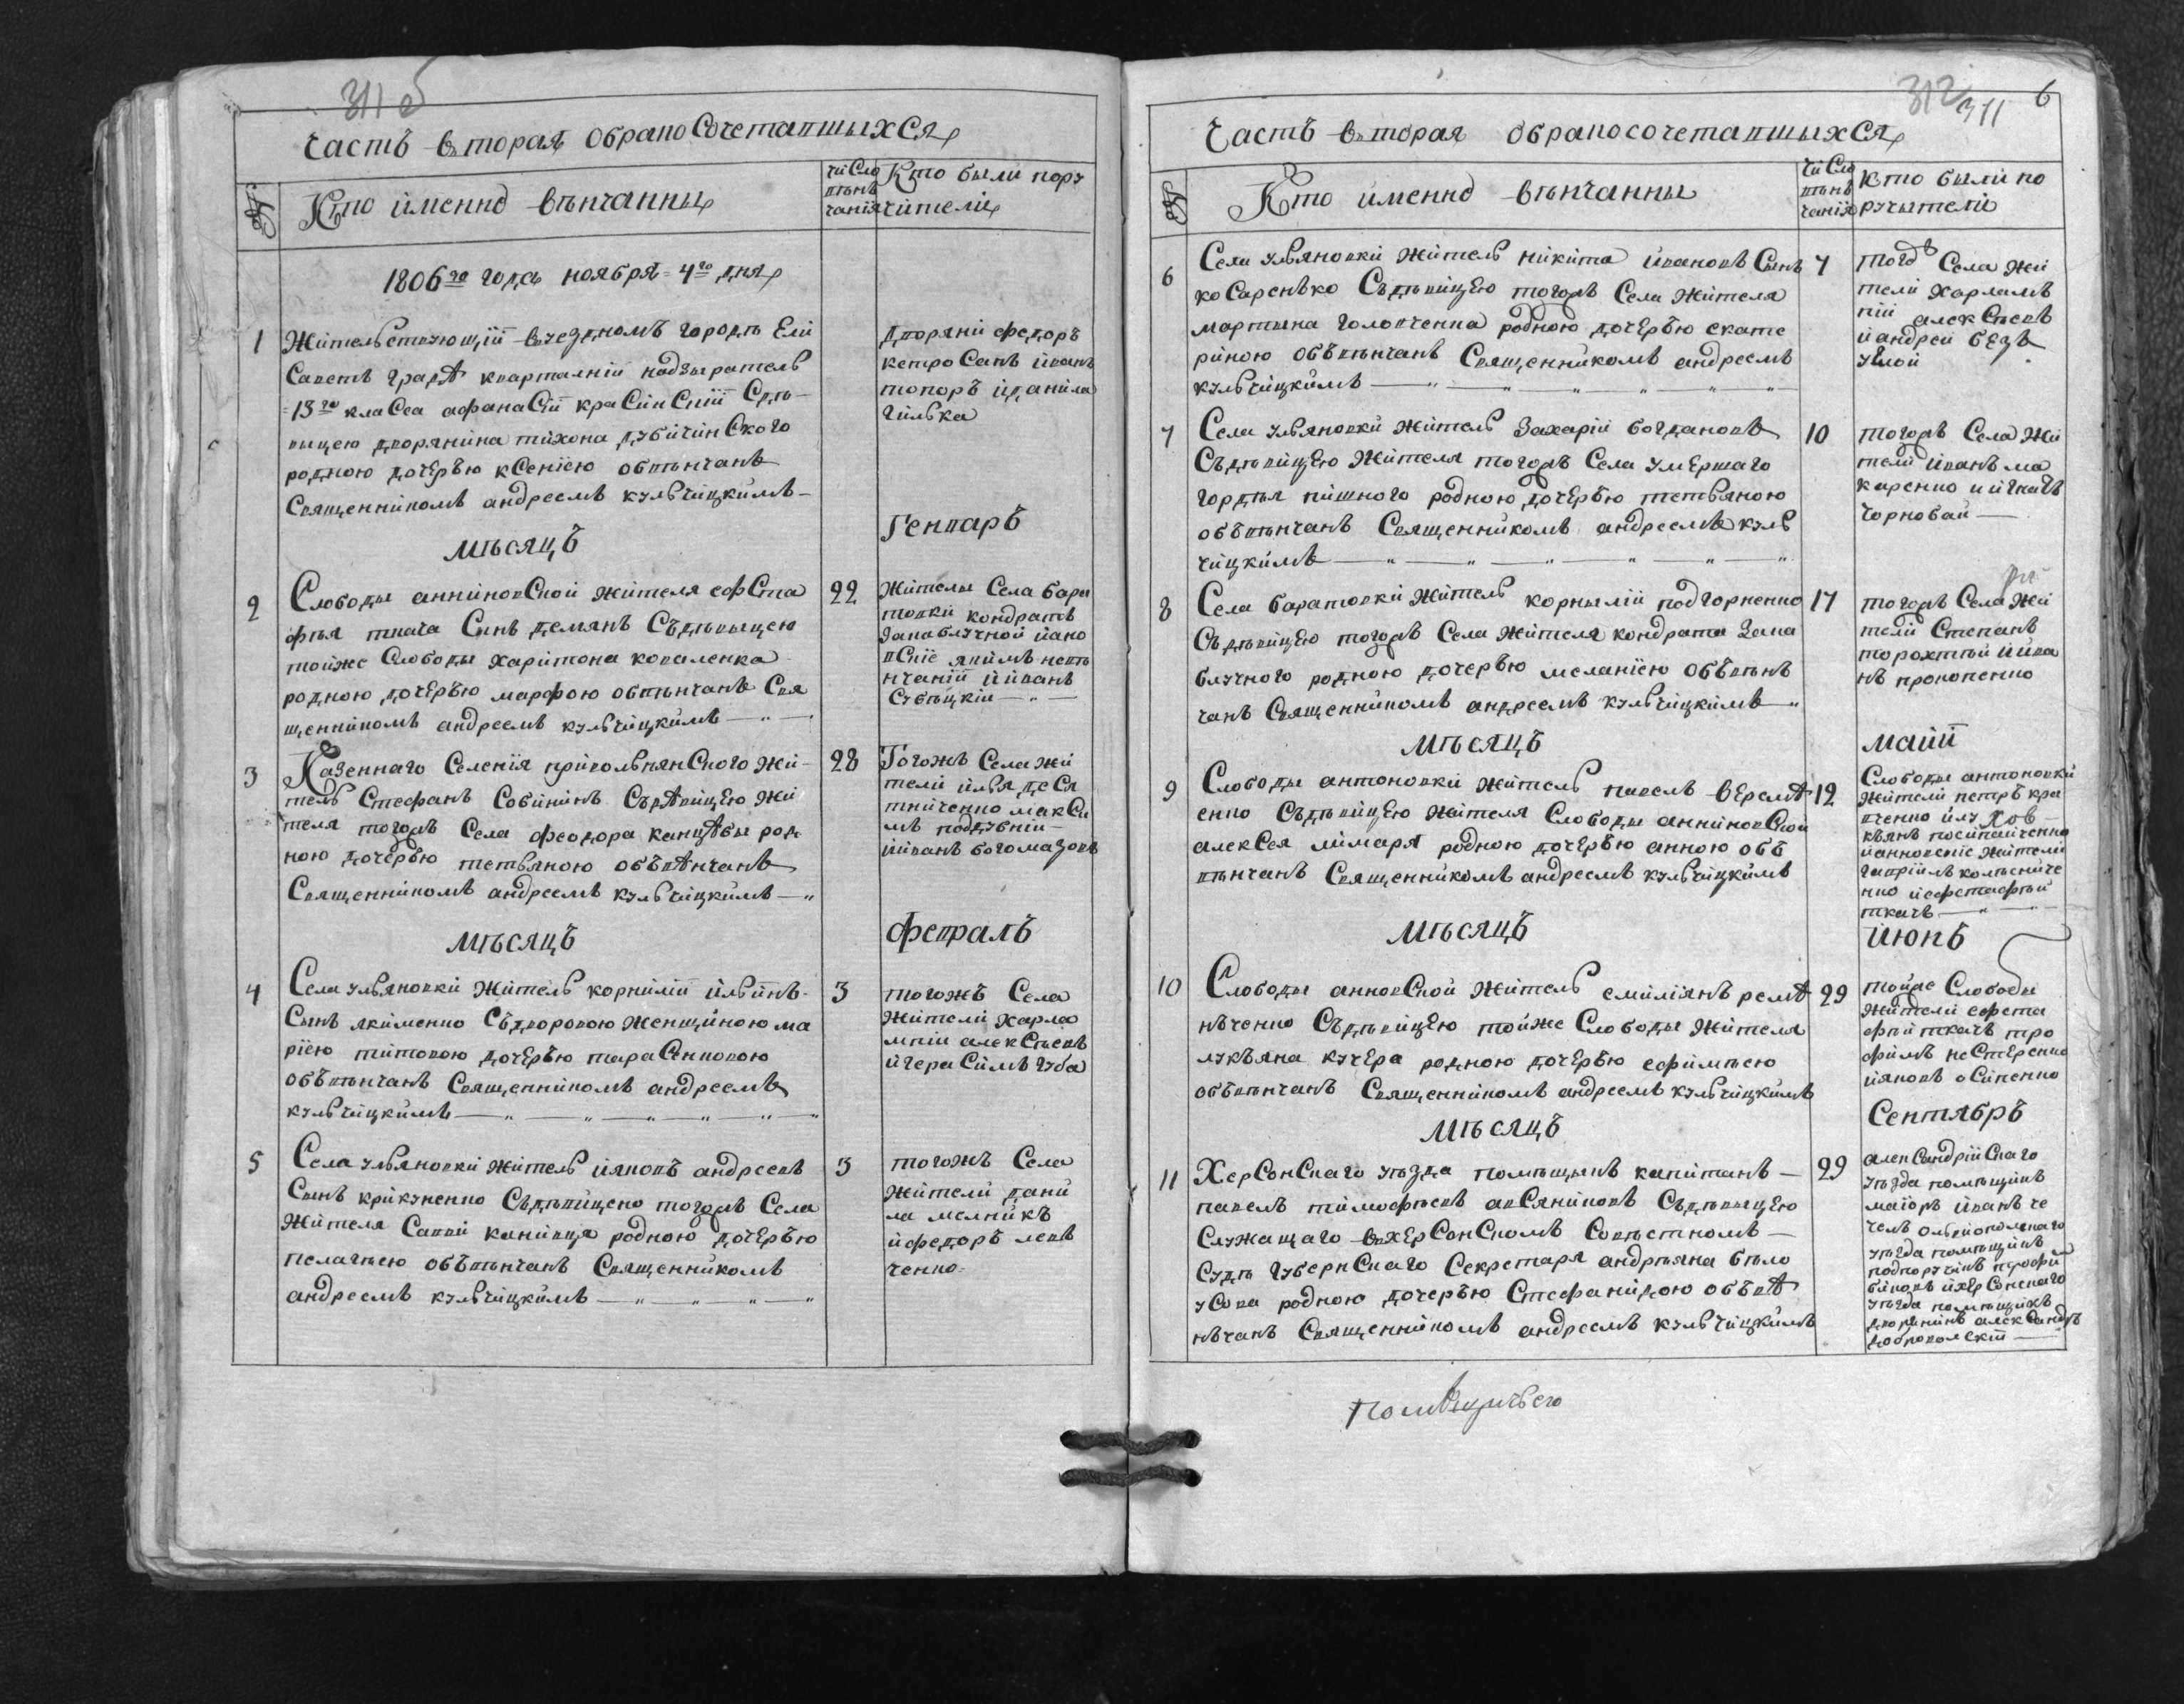 311 б
Часть вторая обраносочетавшыхся
№
Кто именно вѣнчанны
число вѣнчанія
Кто были пору
чители
1806го года ноября 4го дня
1
Жительствующій вуезномъ городѣ Ели
Саветъ градѣ кварталній надзыратель
13го класса афанасій Сдѣ
вицею дворянина тихона
родною дочерью ксеніею обвѣнчанъ
Священникомъ андреемъ кульчицкимъ
дворяни федоръ
иванъ
топоръ иданила
гилька
мѣсяцъ
Генваръ
2
Слободы анниновской жителя евста
фѣя ткача Синъ демянъ Съдѣвыцею
тойже Слободы харитона коваленка
родною дочерью марфою обвѣнчанъ Свя
щенникомъ андреемъ кульчицкимъ
22
Жителы Села бара
товки кондратъ
запаблучной иано
вскіе якимъ невѣ
нчаній ииванъ
3
Казенного Селенія привольнянского жи
тель Стефанъ Собининъ Съдѣвицею жи
теля тогожъ Села феодора канцѣбы род
ною дочерью тетьяною обвѣнчанъ
Священникомъ андреемъ кульчицкимъ
28
Тогожъ Села жи
тели илья деся
тниченко макси
мъ поддубній
ииванъ богомазовъ
мѣсяцъ
февралъ
4
Села ульяновки житель корнилій ильинъ
Сынъ якименко Съдворовою женщиною ма
ріею титовою дочерью тарасенковою
обвѣнчанъ Священникомъ андреемъ
кульчицкимъ
3
тогожъ Села
жители харла
мпій алексѣевъ
игерасимъ губа
5
Села ульяновки житель ияковъ андреевъ
Сынъ крикуненко Съдѣвицею тогожъ Села
жителя Савви канивца родною дочерью
пелагѣею обвѣнчанъ Священникомъ
андреемъ кульчицкимъ
3
тогожъ Села
жители дани
ла мелникъ
ифедоръ левъ
ченко
312/311 6
Часть вторая обраносочетавшыхся
№
Кто именно вѣнчанны
число вѣнчанія
кто были по
ручытели
6
Села ульяновки житель никита ивановъ Сынъ
косаренько Съдѣвицею тогожъ Села жителя
мартына головченка родною дочерью екате
риною обвѣнчанъ Священникомъ андреемъ
кульчицкимъ
7
того Села жи
тели харламъ
пій алексѣевъ
иандрей безъ
7
Села ульяновки житель Захарій богдановъ
Съдѣвицею жителя тогожъ Села умершаго
гордѣя пишного родною дочерью тетьяною
обвѣнчанъ Священникомъ андреемъ куль
чицкимъ
10
тогожъ Села жи
тели иванъ ма
каренко иигнатъ
чорнобай
8
Села баратовки житель корнылій подгорненко
Съдѣвицею тогожъ Села жителя кондрата запа
блучного родною дочерью меланіею обвѣнъ
чанъ Священникомъ андреемъ кульчицкимъ
17
тогожъ Села жи
тели Степанъ
торохтѣй иива
нъ прокопенко
мѣсяцъ
маий
9
Слободы антоновки житель павелъ веремѣ
енко Съдѣвицею жителя Слободы анниновской
алексея лимаря родною дочерью анною объ
вѣнчанъ Священникомъ андреемъ кульчицкимъ
12
Слободы антоновки
жители петръ кра
вченко илу
кьянъ
ианновскіе жители
гавріилъ колѣсниче
нко иефстафѣй
ткачъ
мѣсяцъ
июнь
10
Слободы анновской житель емиліянъ ремѣ
нѣченко Съдѣвицею тойже Слободы жителя
лукьяна кучера родною дочерью ефимѣею
обвѣнчанъ Священникомъ андреемъ кульчицкимъ
29
тойже Слободы
жители ефста
фѣй ткачъ тро
фимъ нестеренко
ияковъ осипенко
мѣсяцъ
Сентябръ
11
Херсонскаго уѣзда помѣщыкъ капитанъ
павелъ тимофѣевъ авсяниковъ Съдѣвыцею
служащаго вхерсонскомъ Совѣстномъ
судѣ губернскаго Секретаря андрѣяна бѣло
усова родною дочерью Стефанидою обвѣ
нчанъ Священникомъ андреемъ кульчицкимъ
29
александрійскаго
уѣзда помѣщикъ
маіоръ иванъ че
чель ольвіополскаго
уѣзда помѣщикъ
подпоручикъ
ихерсонскаго
уѣзда помѣщикъ
дворянинъ александръ
добровольскій